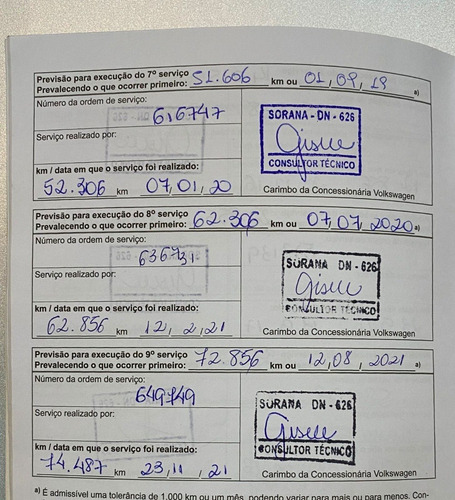 Previsão para execução do 7º serviço
Prevalecendo o que ocorrer primeiro: 51.606 km ou 01, 09, 19 a)
Número da ordem de serviço:
616747
SORANA - DN - 626
Gisele
CONSULTOR TÉCNICO
Serviço realizado por:
km / data em que o serviço foi realizado:
52.306 km 07, 01, 20
Carimbo da Concessionária Volkswagen
Previsão para execução do 8º serviço
Prevalecendo o que ocorrer primeiro: 62.306 km ou 07, 07, 2020 a)
Número da ordem de serviço:
636731
SORANA DN - 626
Gisele
CONSULTOR TÉCNICO
Serviço realizado por:
km / data em que o serviço foi realizado:
62.856 km 12, 2, 21
Carimbo da Concessionária Volkswagen
Previsão para execução do 9º serviço
Prevalecendo o que ocorrer primeiro: 72.856 km ou 12, 08, 2021 a)
Número da ordem de serviço:
649749
SORANA DN - 626
Gisele
CONSULTOR TÉCNICO
Serviço realizado por:
km / data em que o serviço foi realizado:
74.487 km 23, 11, 21
Carimbo da Concessionária Volkswagen
a) É admissível uma tolerância de 1.000 km ou um mês, podendo variar para mais ou para menos. Con-